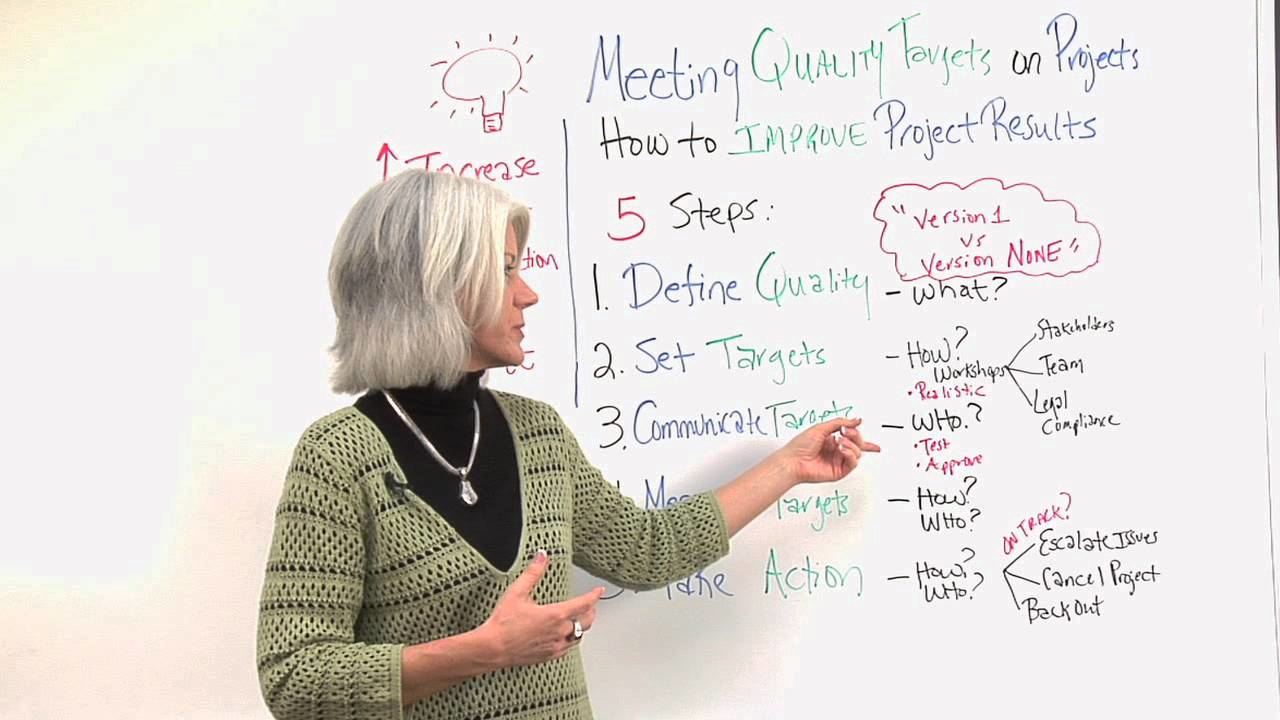 Meeting QUALITY Targets on Projects
How to IMPROVE Project Results
Increase
5 Steps:
"Version 1
vs
Version NONE"
1. Define Quality - What?
2. Set Targets - How?
Workshops
Stakeholders
Team
Legal
Compliance
• Realistic
3. Communicate Targets - WHO?
• Test
• Approve
Targets - How?
WHO?
Take Action - How?
WHO?
ON TRACK?
Escalate Issues
Cancel Project
Back Out